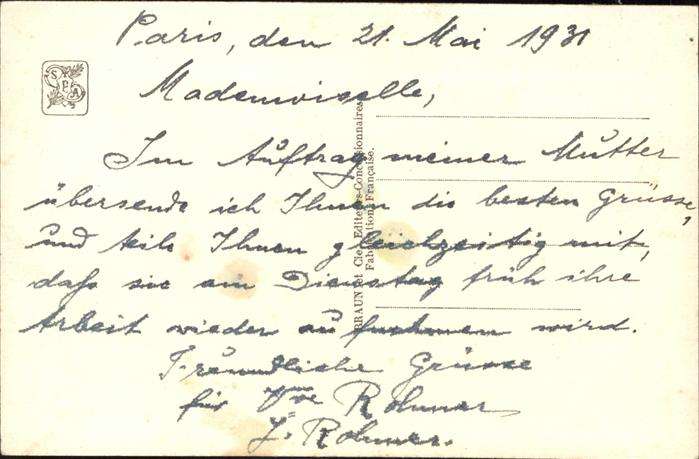 Paris, den 21. Mai 1931
SPA
Mademoiselle,
Im Auftrag meiner Mutter
übersende ich Ihnen die besten Grüsse,
und teile Ihnen gleichzeitig mit,
daß sie am Dienstag früh ihre
Arbeit wieder aufnehmen wird.
Freundliche Grüsse
für Vve Rohmer
J. Rohmer.
BRAUN et Cie, Editeurs-Concessionnaires
Fabrication Française.